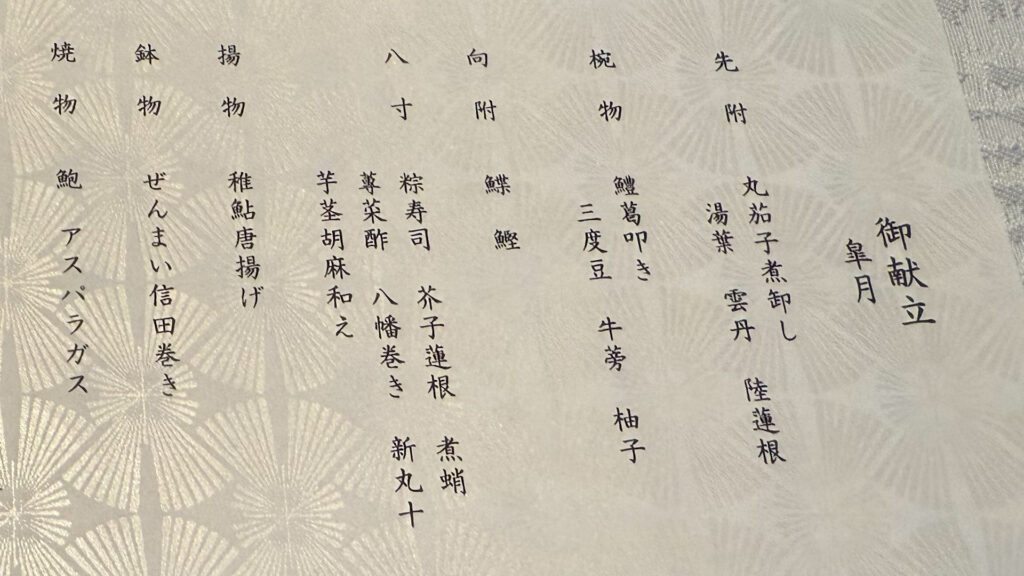 御献立
皐月
先附 丸茄子煮卸し 陸蓮根
湯葉 雲丹
椀物 鱧葛叩き 柚子
三度豆 牛蒡
向附 鰈 鰹
八寸 粽寿司 芥子蓮根 煮蛸
蓴菜酢 八幡巻き 新丸十
芋茎胡麻和え
揚物 稚鮎唐揚げ
鉢物 ぜんまい信田巻き
焼物 鮑 アスパラガス